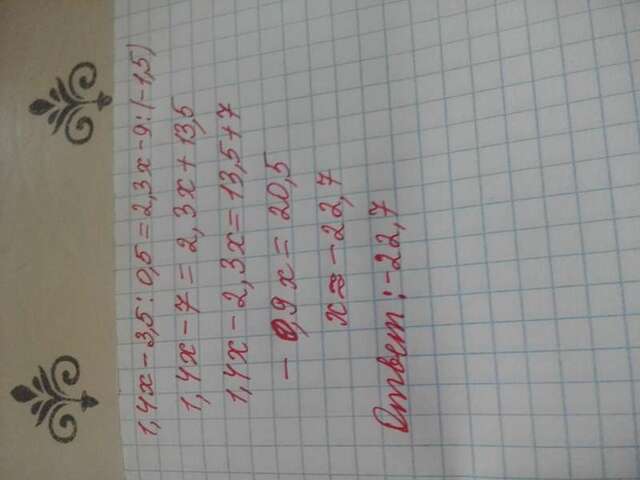 1,4x - 3,5 : 0,5 = 2,3x - 9 : (-1,5)
1,4x - 7 = 2,3x + 13,5
1,4x - 2,3x = 13,5 + 7
- 0,9x = 20,5
x ≈ -22,7
Ответ: -22,7